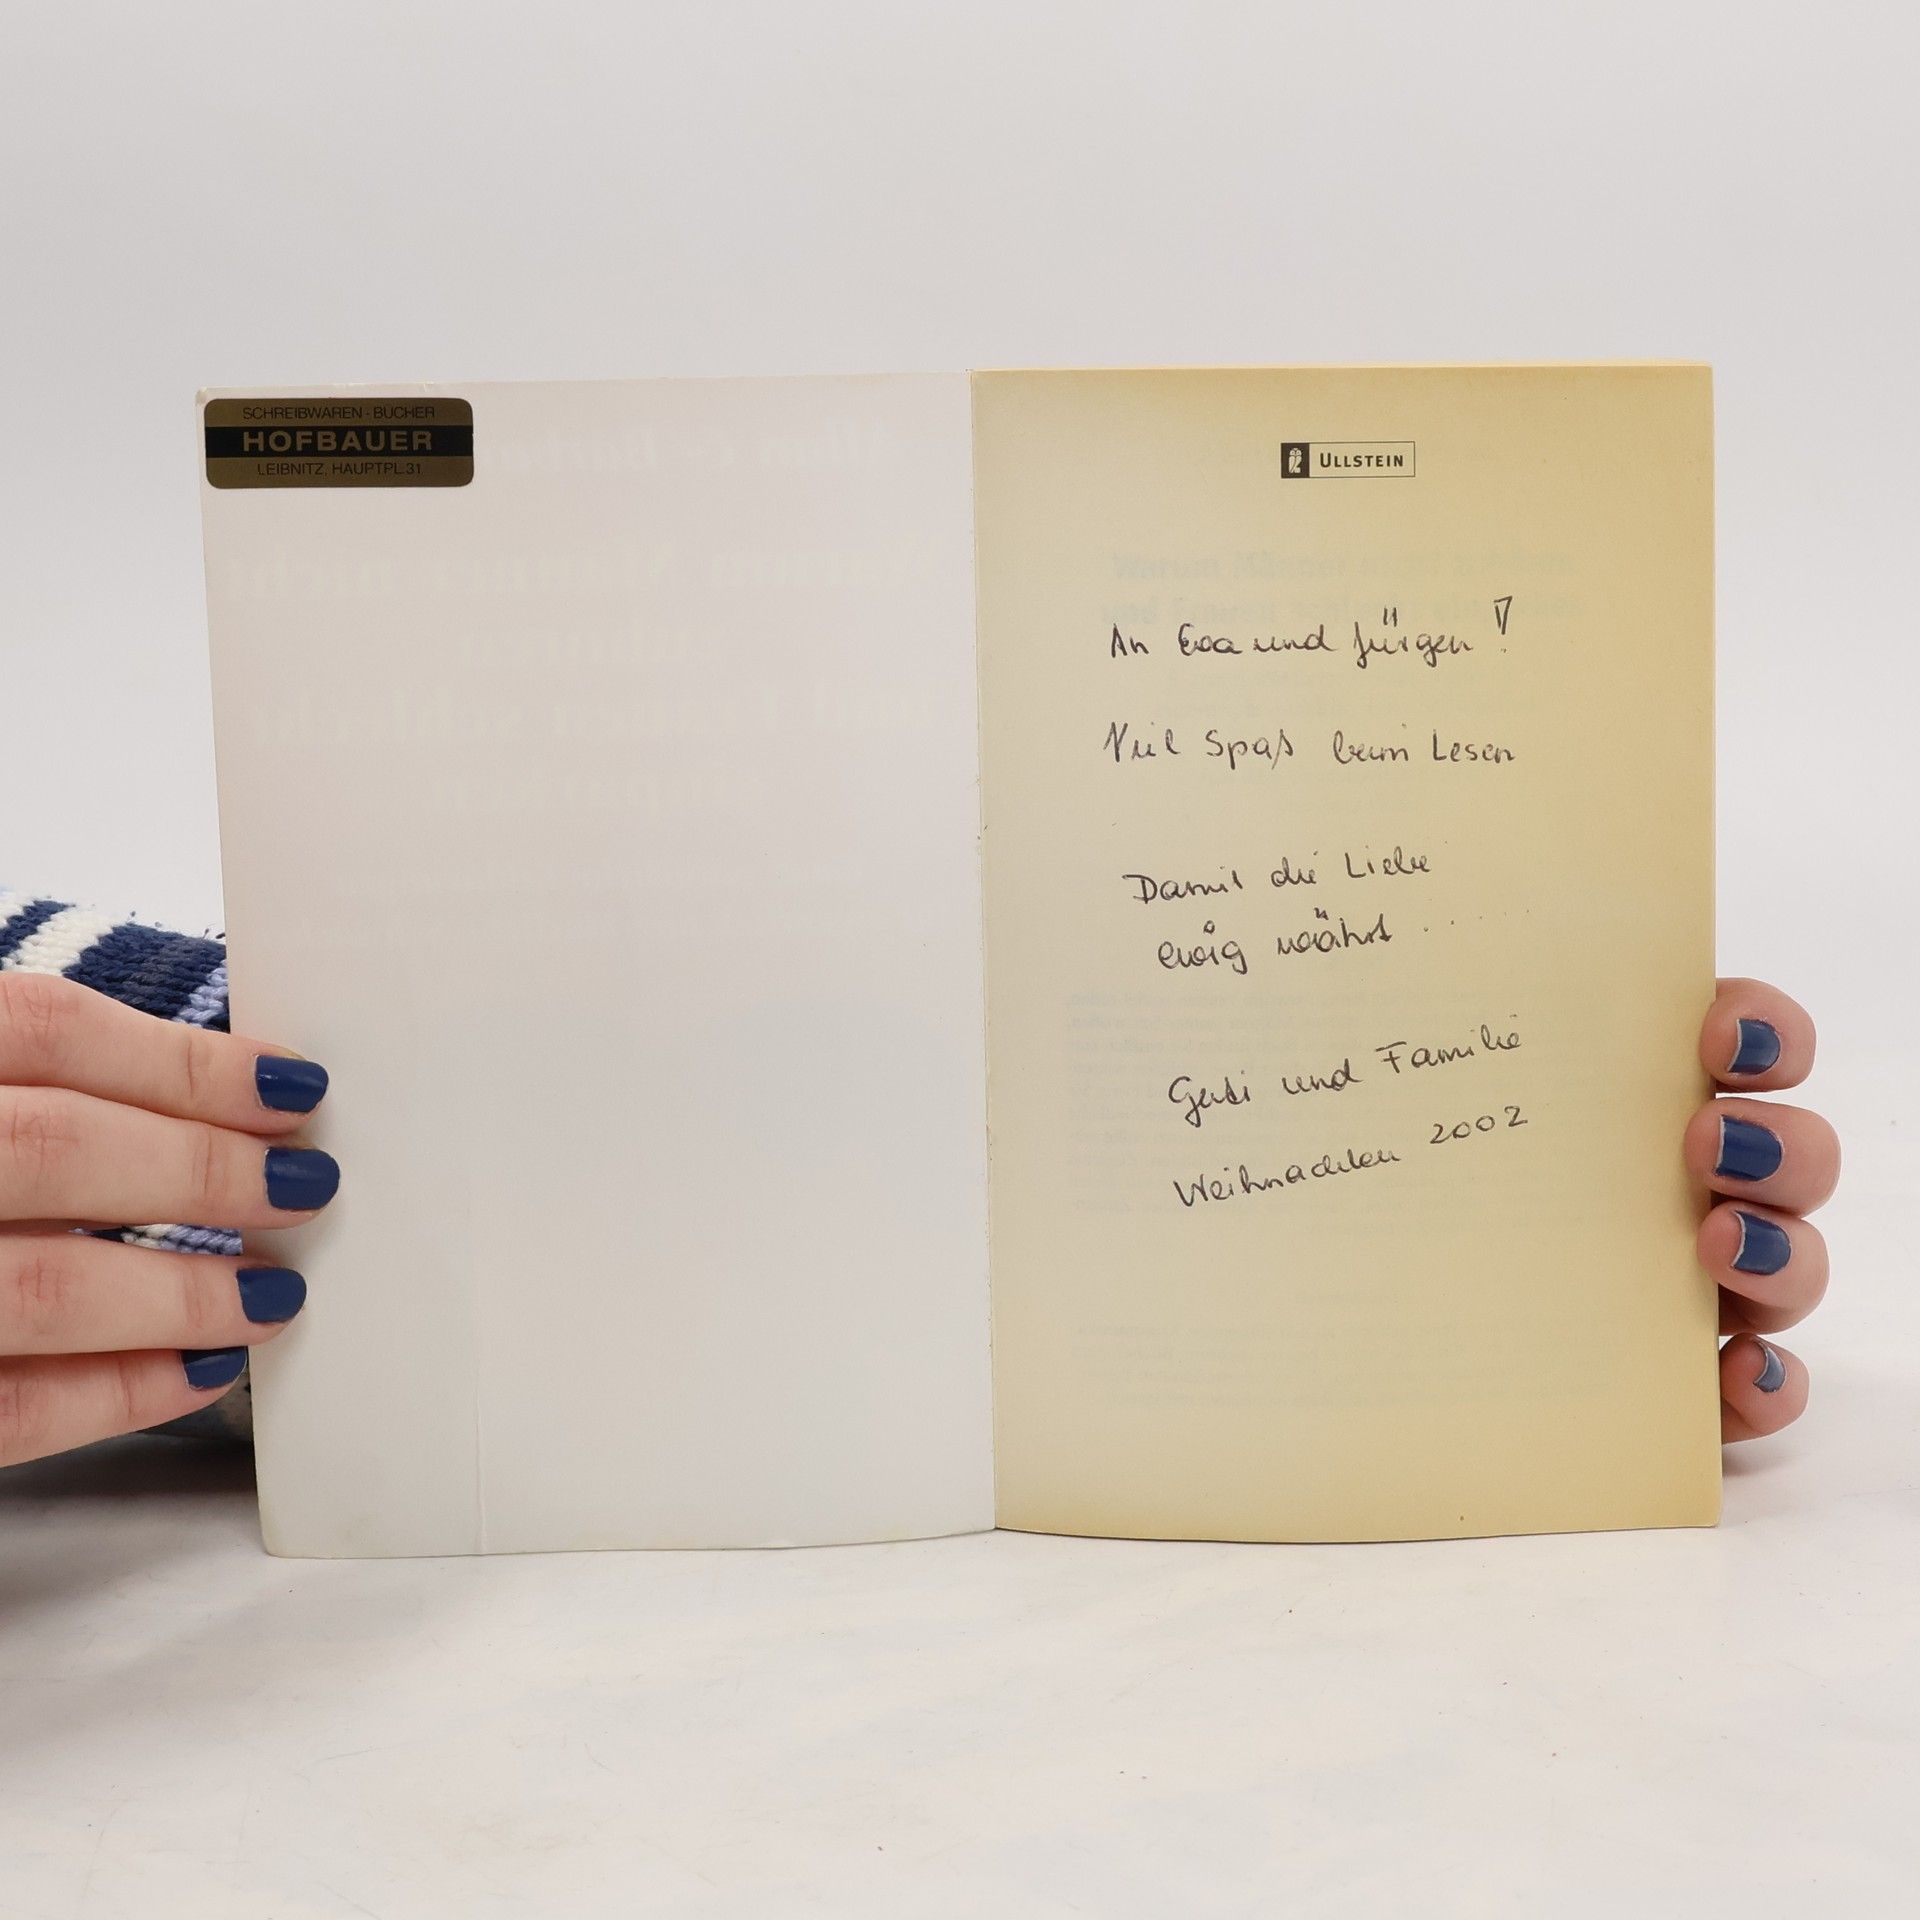 SCHREIBWAREN - BÜCHER
HOFBAUER
LEIBNITZ, HAUPTPL.31
ULLSTEIN
An Eva und Jürgen!
Viel Spaß beim Lesen
Damit die Liebe
ewig währt .....
Gusti und Familie
Weihnachten 2002